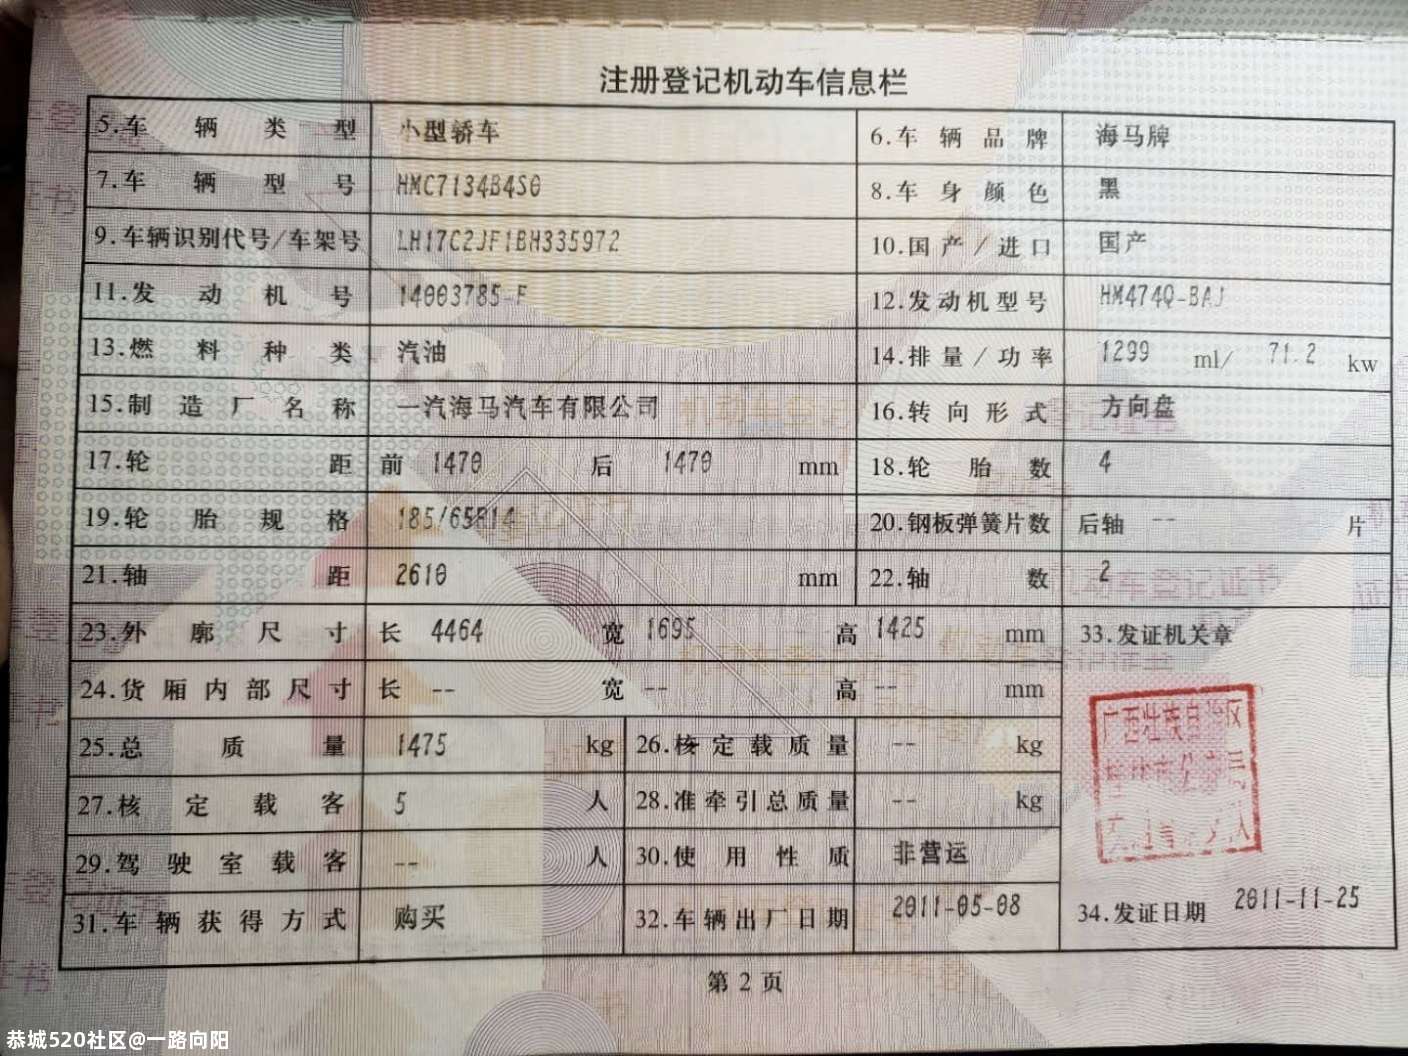 注册登记机动车信息栏
5.车辆类型 小型轿车 6.车辆品牌 海马牌
7.车辆型号 HMC7134B4S0 8.车身颜色 黑
9.车辆识别代号/车架号 LH17C2JF1BH335972 10.国产/进口 国产
11.发动机号 14003785-F 12.发动机型号 HM474Q-BAJ
13.燃料种类 汽油 14.排量/功率 1299 ml/ 71.2 kw
15.制造厂名称 一汽海马汽车有限公司 16.转向形式 方向盘
17.轮距 前 1470 后 1470 mm 18.轮胎数 4
19.轮胎规格 185/65R14 20.钢板弹簧片数 后轴 -- 片
21.轴距 2610 mm 22.轴数 2
23.外廓尺寸 长 4464 宽 1695 高 1425 mm 33.发证机关章
24.货厢内部尺寸 长 -- 宽 -- 高 -- mm
25.总质量 1475 kg 26.核定载质量 -- kg
27.核定载客 5 人 28.准牵引总质量 -- kg
29.驾驶室载客 -- 人 30.使用性质 非营运
31.车辆获得方式 购买 32.车辆出厂日期 2011-05-08 34.发证日期 2011-11-25
第 2 页
恭城520社区@一路向阳